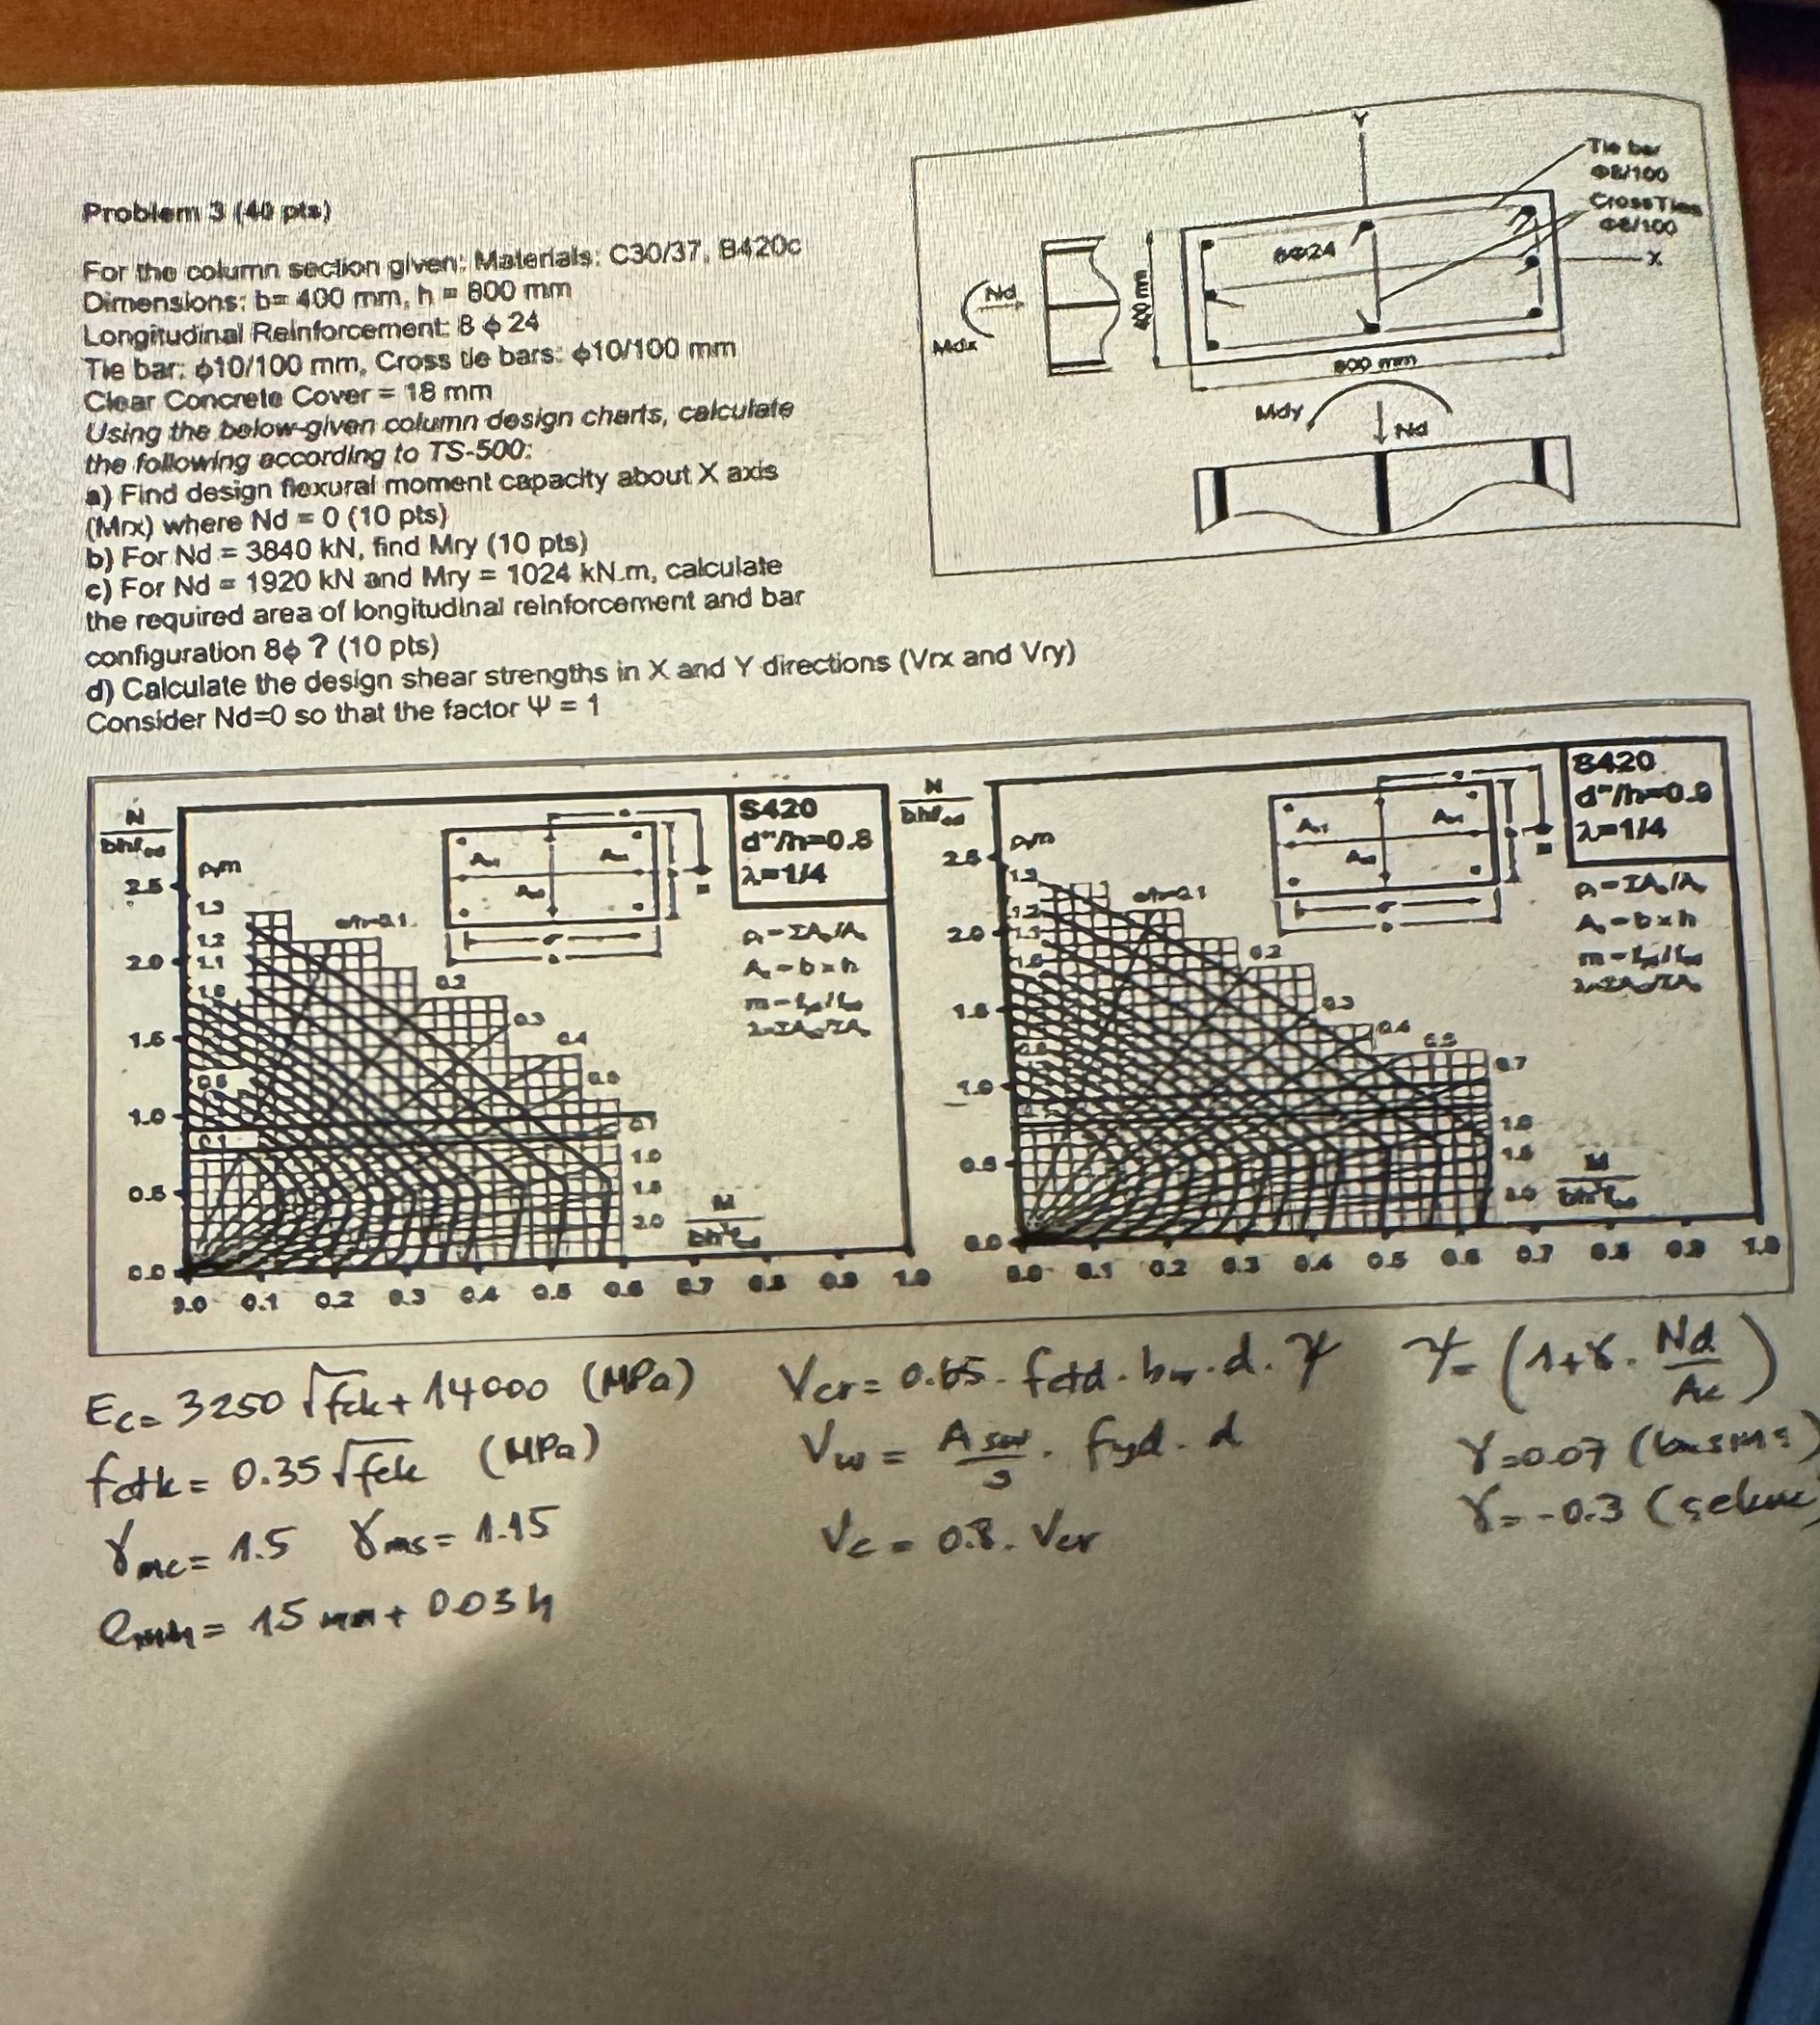 Problem 3 (40 pts)
For the column section given: Materials: C30/37, B420c
Dimensions: b= 400 mm, h = 800 mm
Longitudinal Reinforcement: 8 ϕ 24
Tie bar: ϕ10/100 mm, Cross tie bars: ϕ10/100 mm
Clear Concrete Cover = 18 mm
Using the below-given column design charts, calculate
the following according to TS-500:
a) Find design flexural moment capacity about X axis
(Mrx) where Nd = 0 (10 pts)
b) For Nd = 3840 kN, find Mry (10 pts)
c) For Nd = 1920 kN and Mry = 1024 kN.m, calculate
the required area of longitudinal reinforcement and bar
configuration 8ϕ ? (10 pts)
d) Calculate the design shear strengths in X and Y directions (Vrx and Vry)
Consider Nd=0 so that the factor Ψ = 1
Y
Tie bar
Φ8/100
Cross Ties
Φ8/100
X
8Φ24
400 mm
800 mm
Nd
Mdx
Mdy
Nd
S420
d"/h=0.8
λ=1/4
N
2.5
2.0
1.5
1.0
0.5
0.0
1.3
1.2
1.1
1.0
0.2
0.3
0.4
0.7
1.0
1.5
2.0
M
0.0 0.1 0.2 0.3 0.4 0.5 0.6 0.7 0.8 0.9 1.0
S420
d"/h=0.9
λ=1/4
N
2.5
2.0
1.5
1.0
0.5
0.0
1.3
1.2
1.1
1.0
0.2
0.3
0.4
0.5
0.7
1.0
1.5
2.0
M
0.0 0.1 0.2 0.3 0.4 0.5 0.6 0.7 0.8 0.9 1.0
Ec= 3250 √fck + 14000 (MPa)
fctk = 0.35 √fck (MPa)
γmc = 1.5 γms = 1.15
emin = 15 mm + 0.03h
Vcr = 0.65 . fctd . bw . d . Ψ
Vw = Asw/s . fyd . d
Vc = 0.8 . Vcr
Ψ= (1+γ. Nd/Ac)
γ=0.07
γ=-0.3